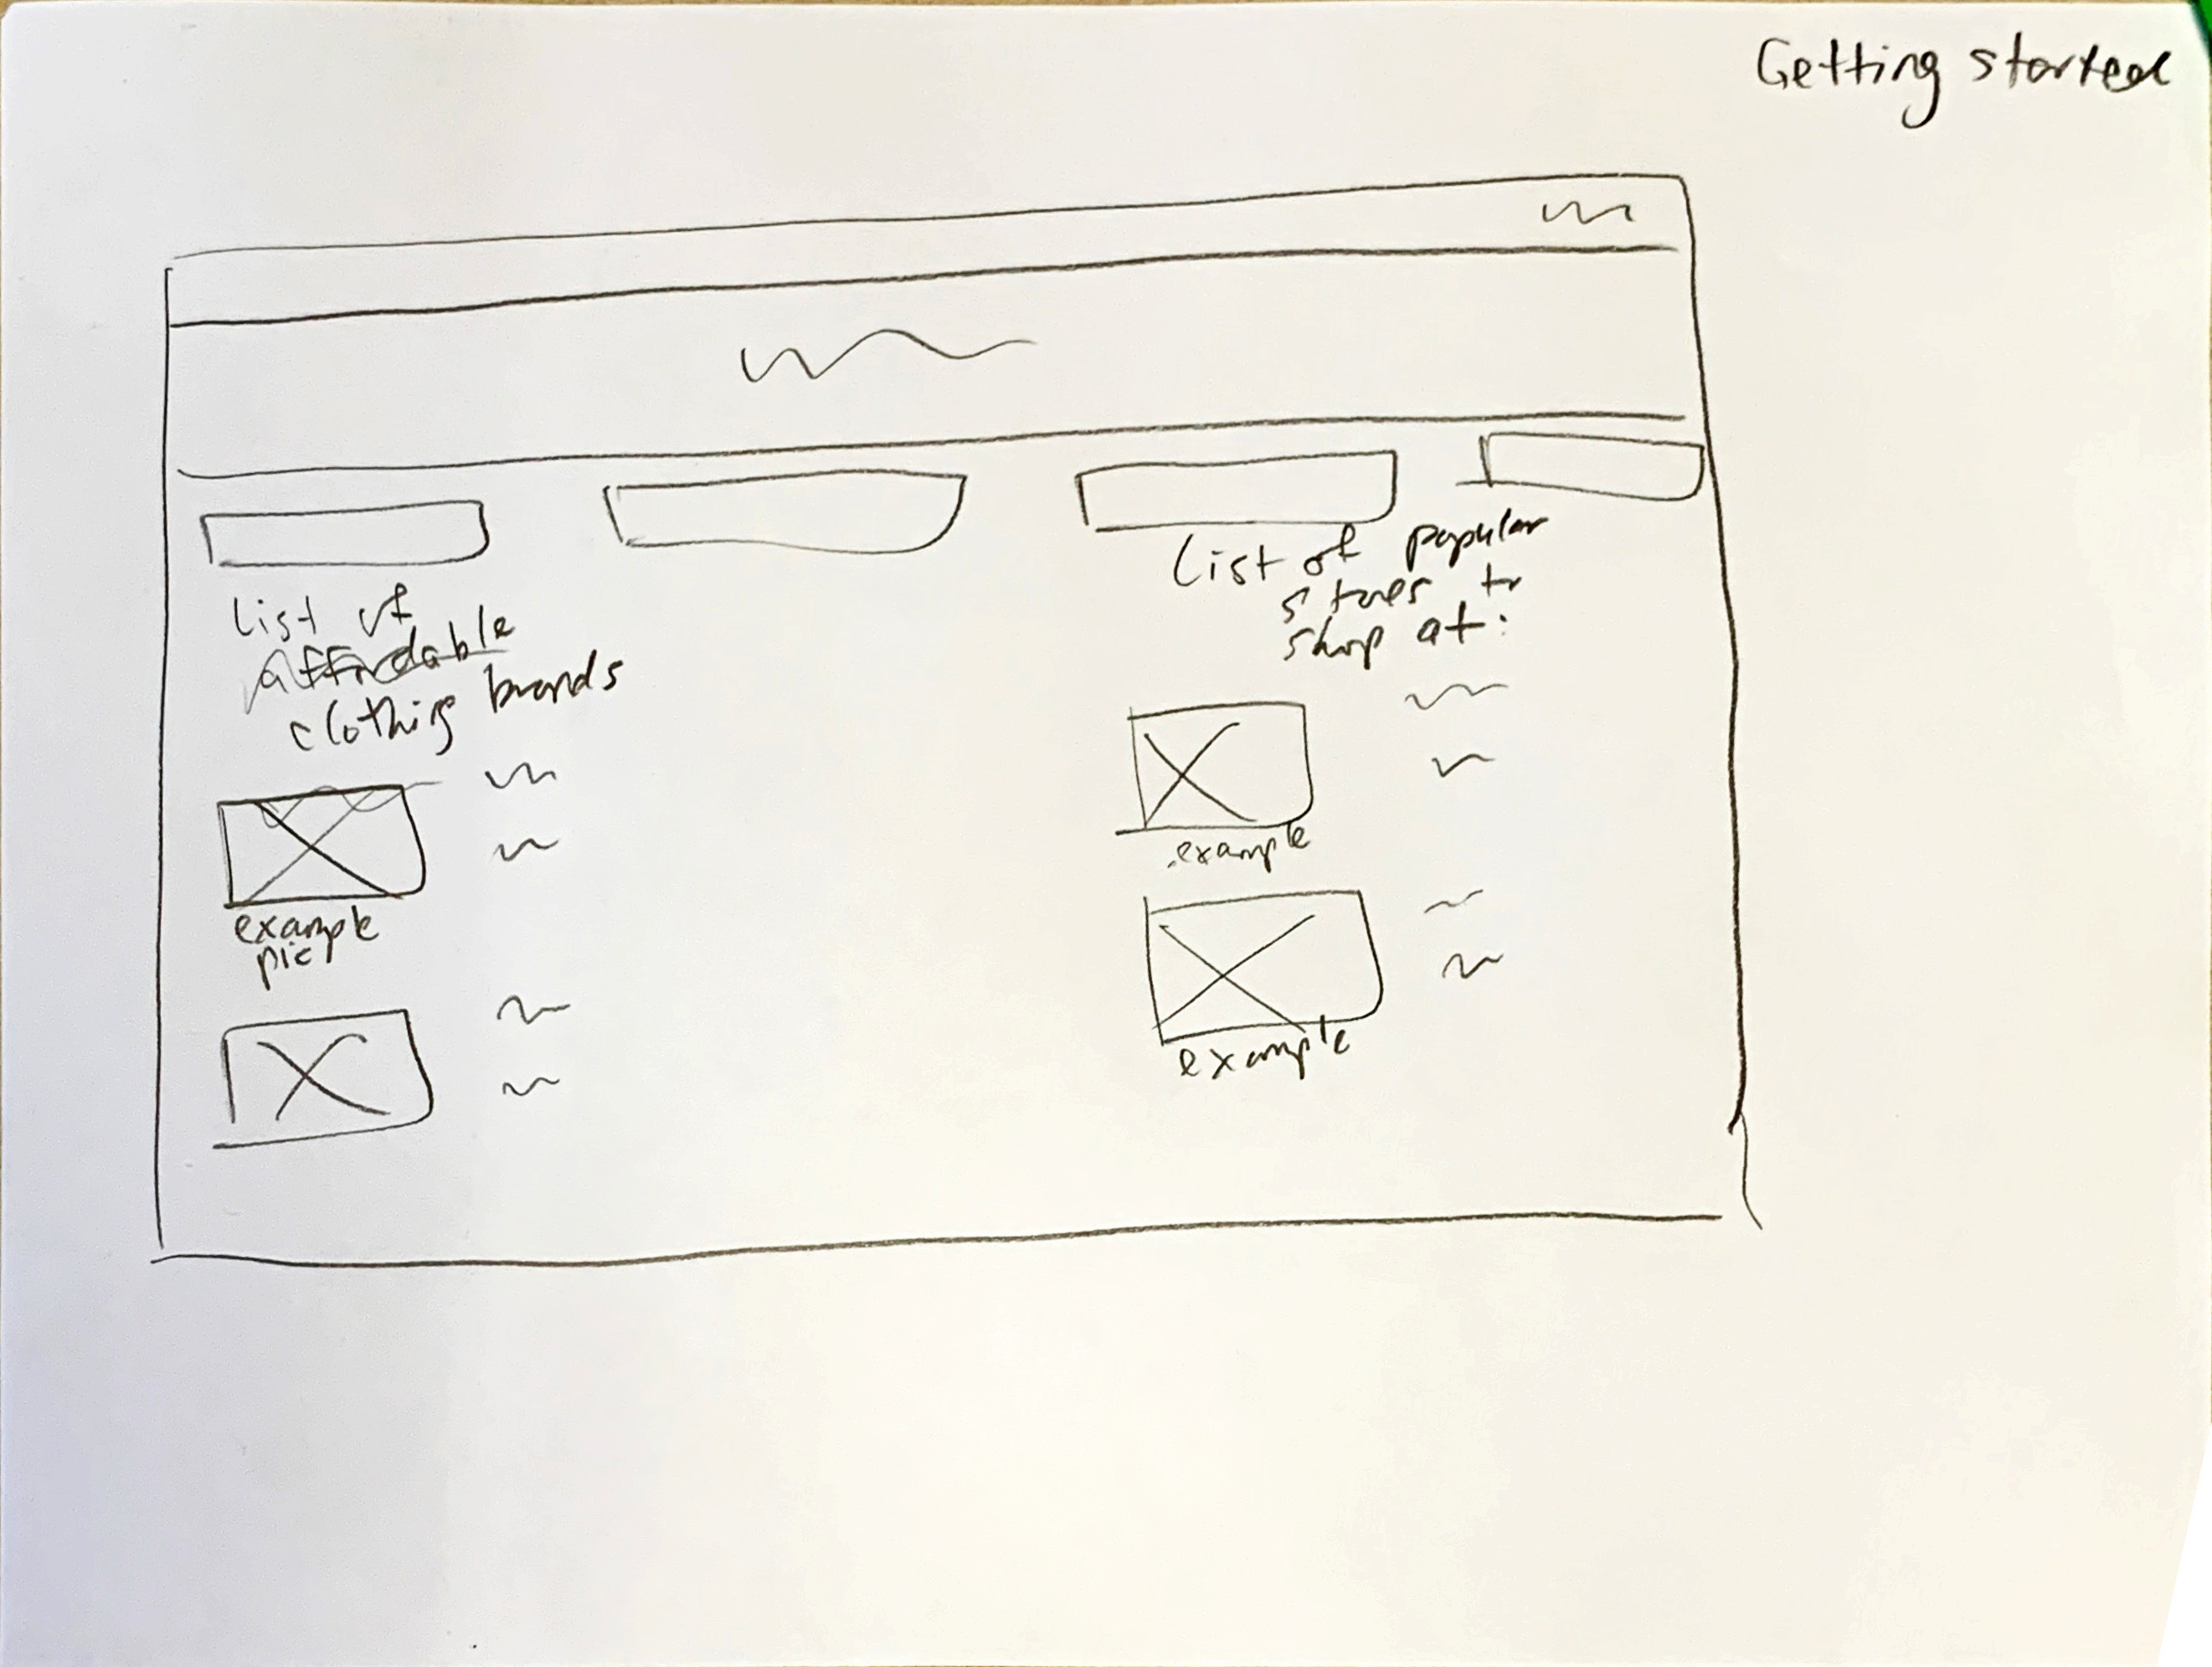 Getting started
List of
affordable
clothing brands
example
pic
List of popular
stores to
shop at:
example
example